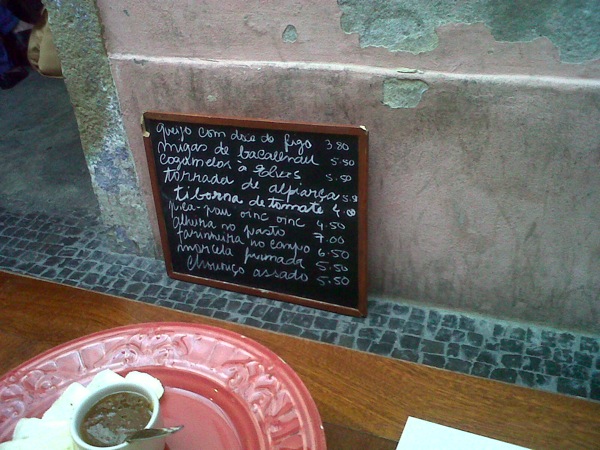 queijo com doce de figo 3.80
migas de bacalhau 5.50
cogumelos à 5.50
torrada de alpiarça
tiborna de tomate
pica-pau oinc oinc 4.50
alheira no pasto 7.00
farinheira no campo 6.50
morcela fumada 5.50
chouriço assado 5.50